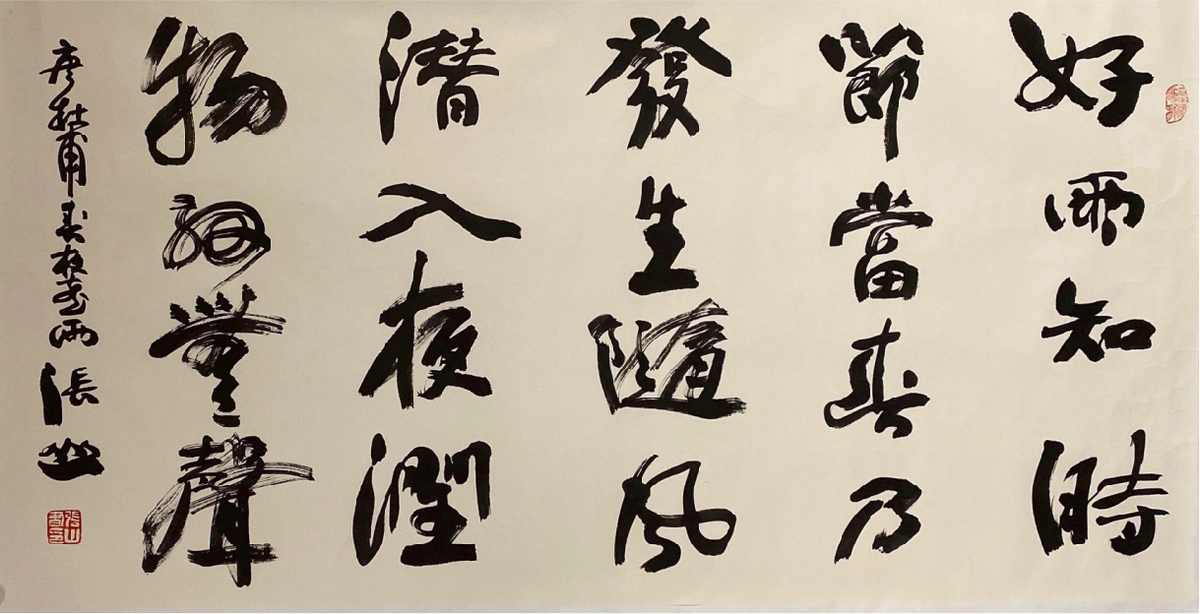 好雨知時
節當春乃
發生隨風
潛入夜潤
物細無聲
唐杜甫春夜喜雨 張